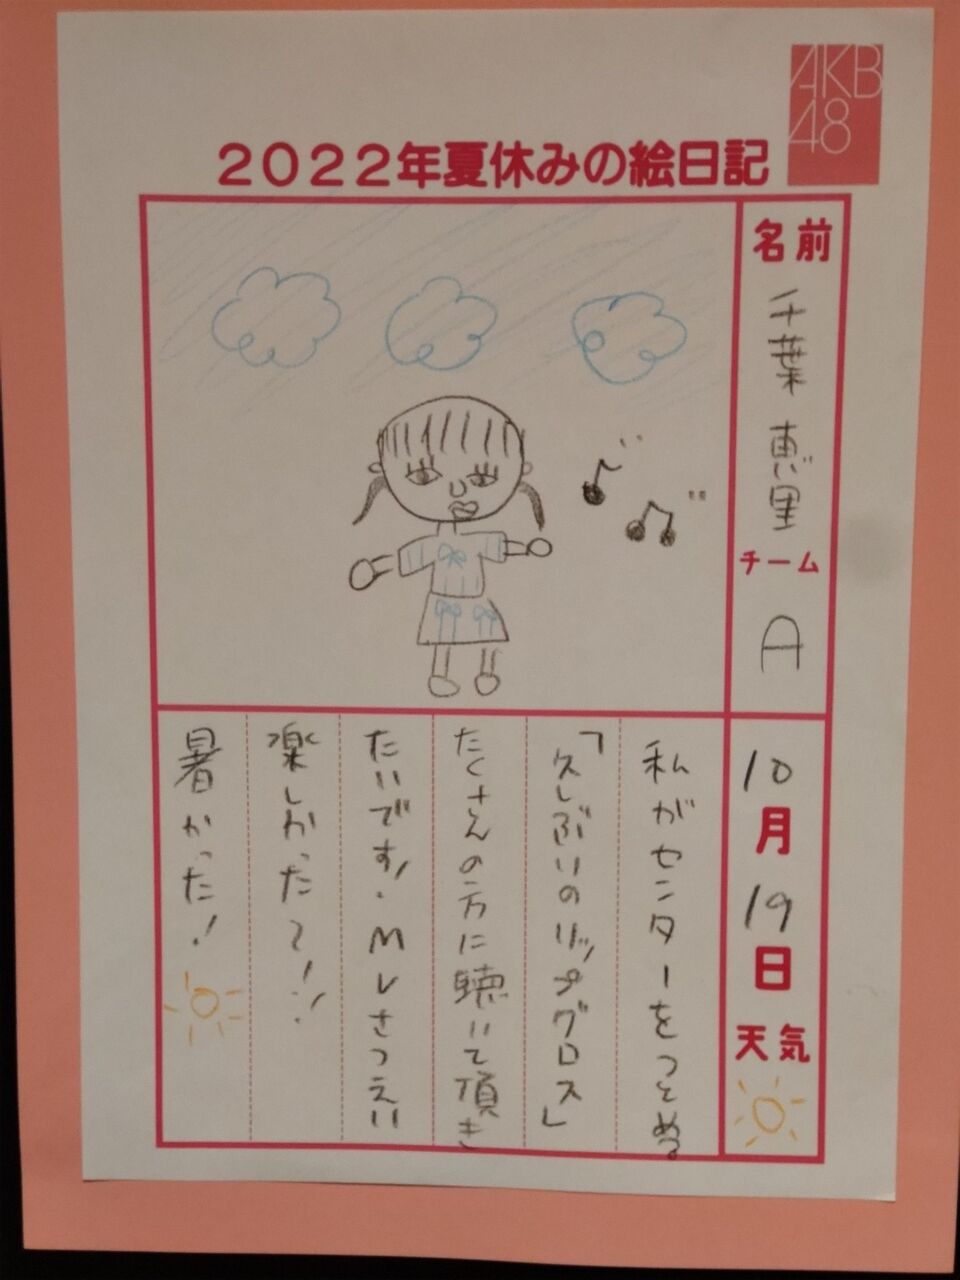 AKB
48
2022年夏休みの絵日記
名前
千葉恵里
チーム
A
10月19日
天気
私がセンターをつとめる
「久しぶりのリップグロス」
たくさんの方に聴いて頂き
たいです!MVさつえい
楽しかったて!!
暑かった!